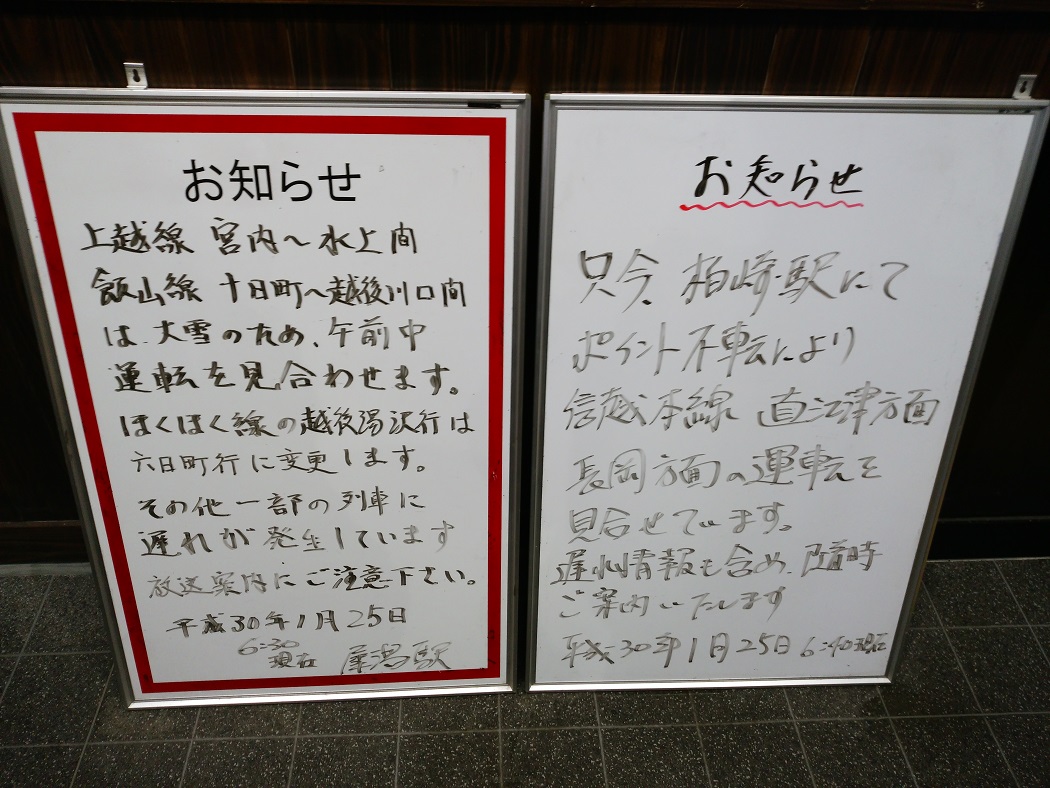 お知らせ
上越線 宮内～水上間
飯山線 十日町～越後川口間
は、大雪のため、午前中
運転を見合わせます。
ほくほく線の越後湯沢行は
六日町行に変更します。
その他一部の列車に
遅れが発生しています
放送案内にご注意下さい。
平成30年1月25日
6:30
現在 犀潟駅
お知らせ
只今、柏崎駅にて
ポイント不転により
信越本線 直江津方面
長岡方面の運転を
見合せています。
遅れ情報も含め、随時
ご案内いたします
平成30年1月25日 6:40現在